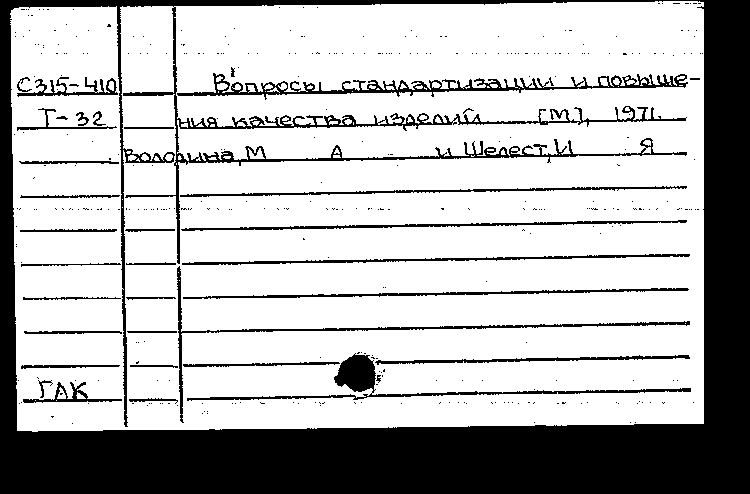 С315-410 Вопросы стандартизации и повыше-
Т-32 ния качества изделий [М.], 1971.
Володина, М А и Шелест, И Я
ГАК